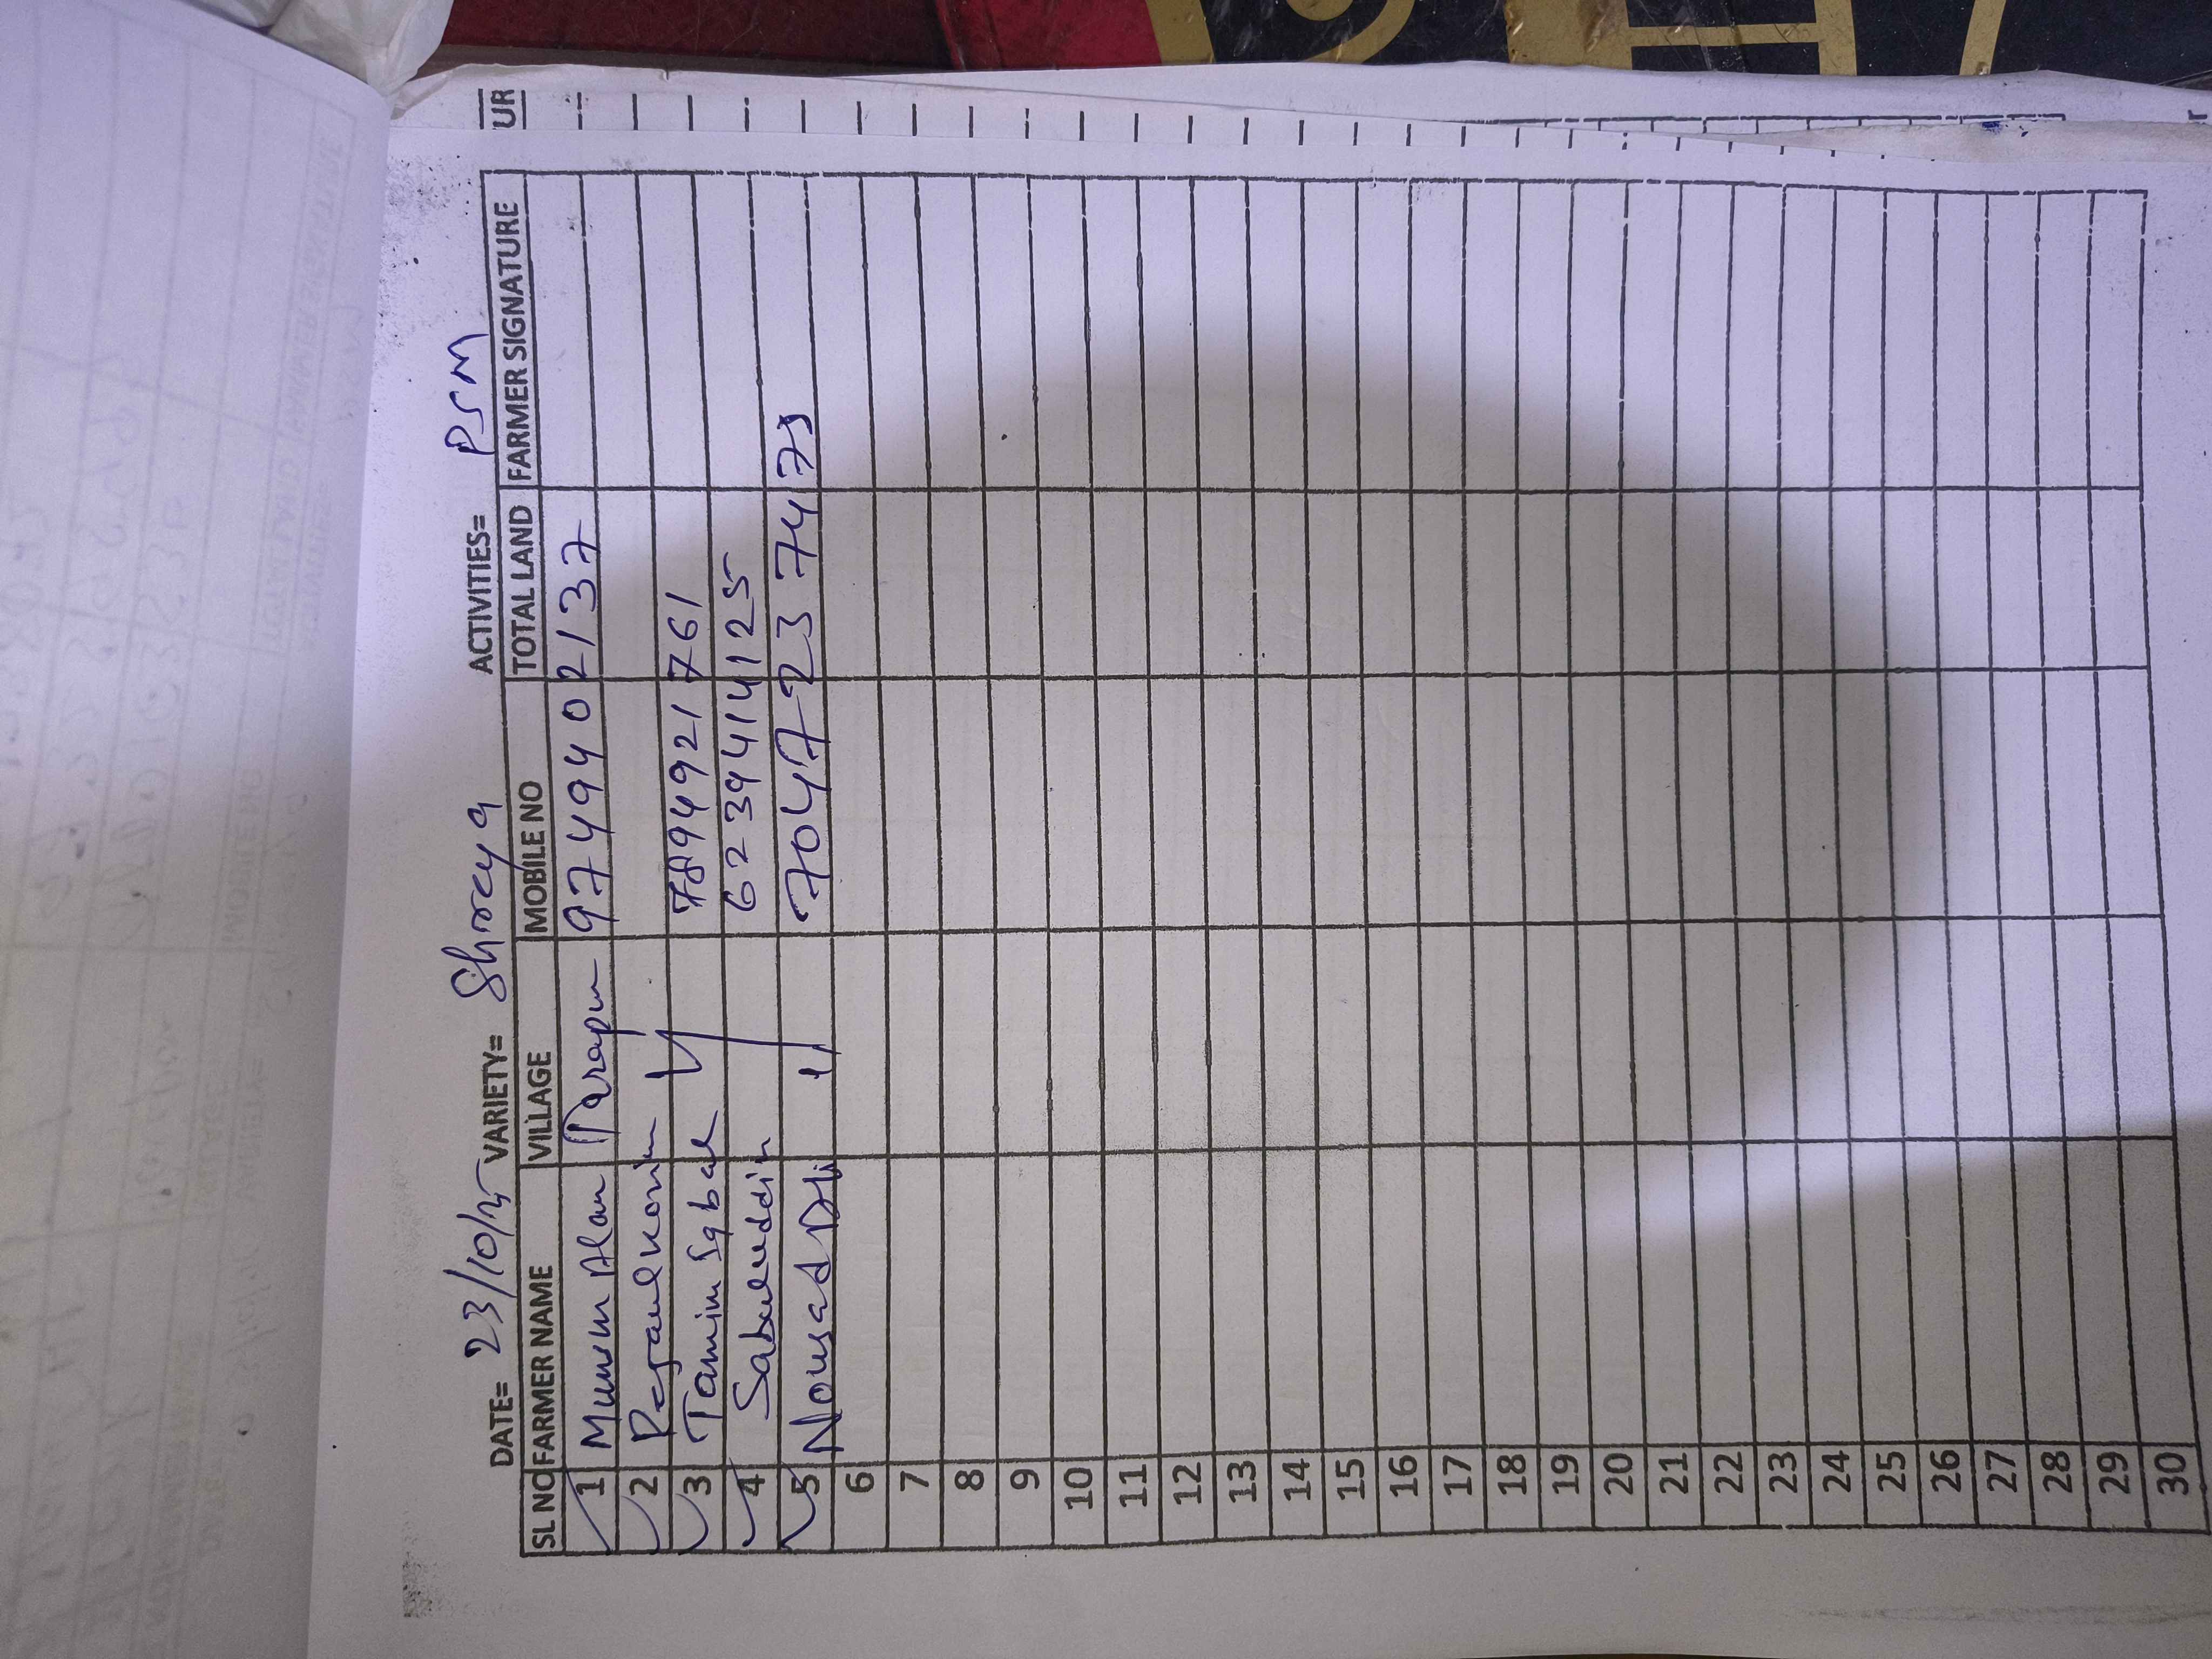 DATE= 23/10/25 VARIETY= Shreya ACTIVITIES= PSM
SL NO FARMER NAME VILLAGE MOBILE NO TOTAL LAND FARMER SIGNATURE
1 Mumun Alam Tarapur 9749402137
2 Rejaul Korim
3 Tamim Iqbal 7894921761
4 Sabeluddin 6239414125
5 Nousad Ali " 7047237475
6
7
8
9
10
11
12
13
14
15
16
17
18
19
20
21
22
23
24
25
26
27
28
29
30
UR